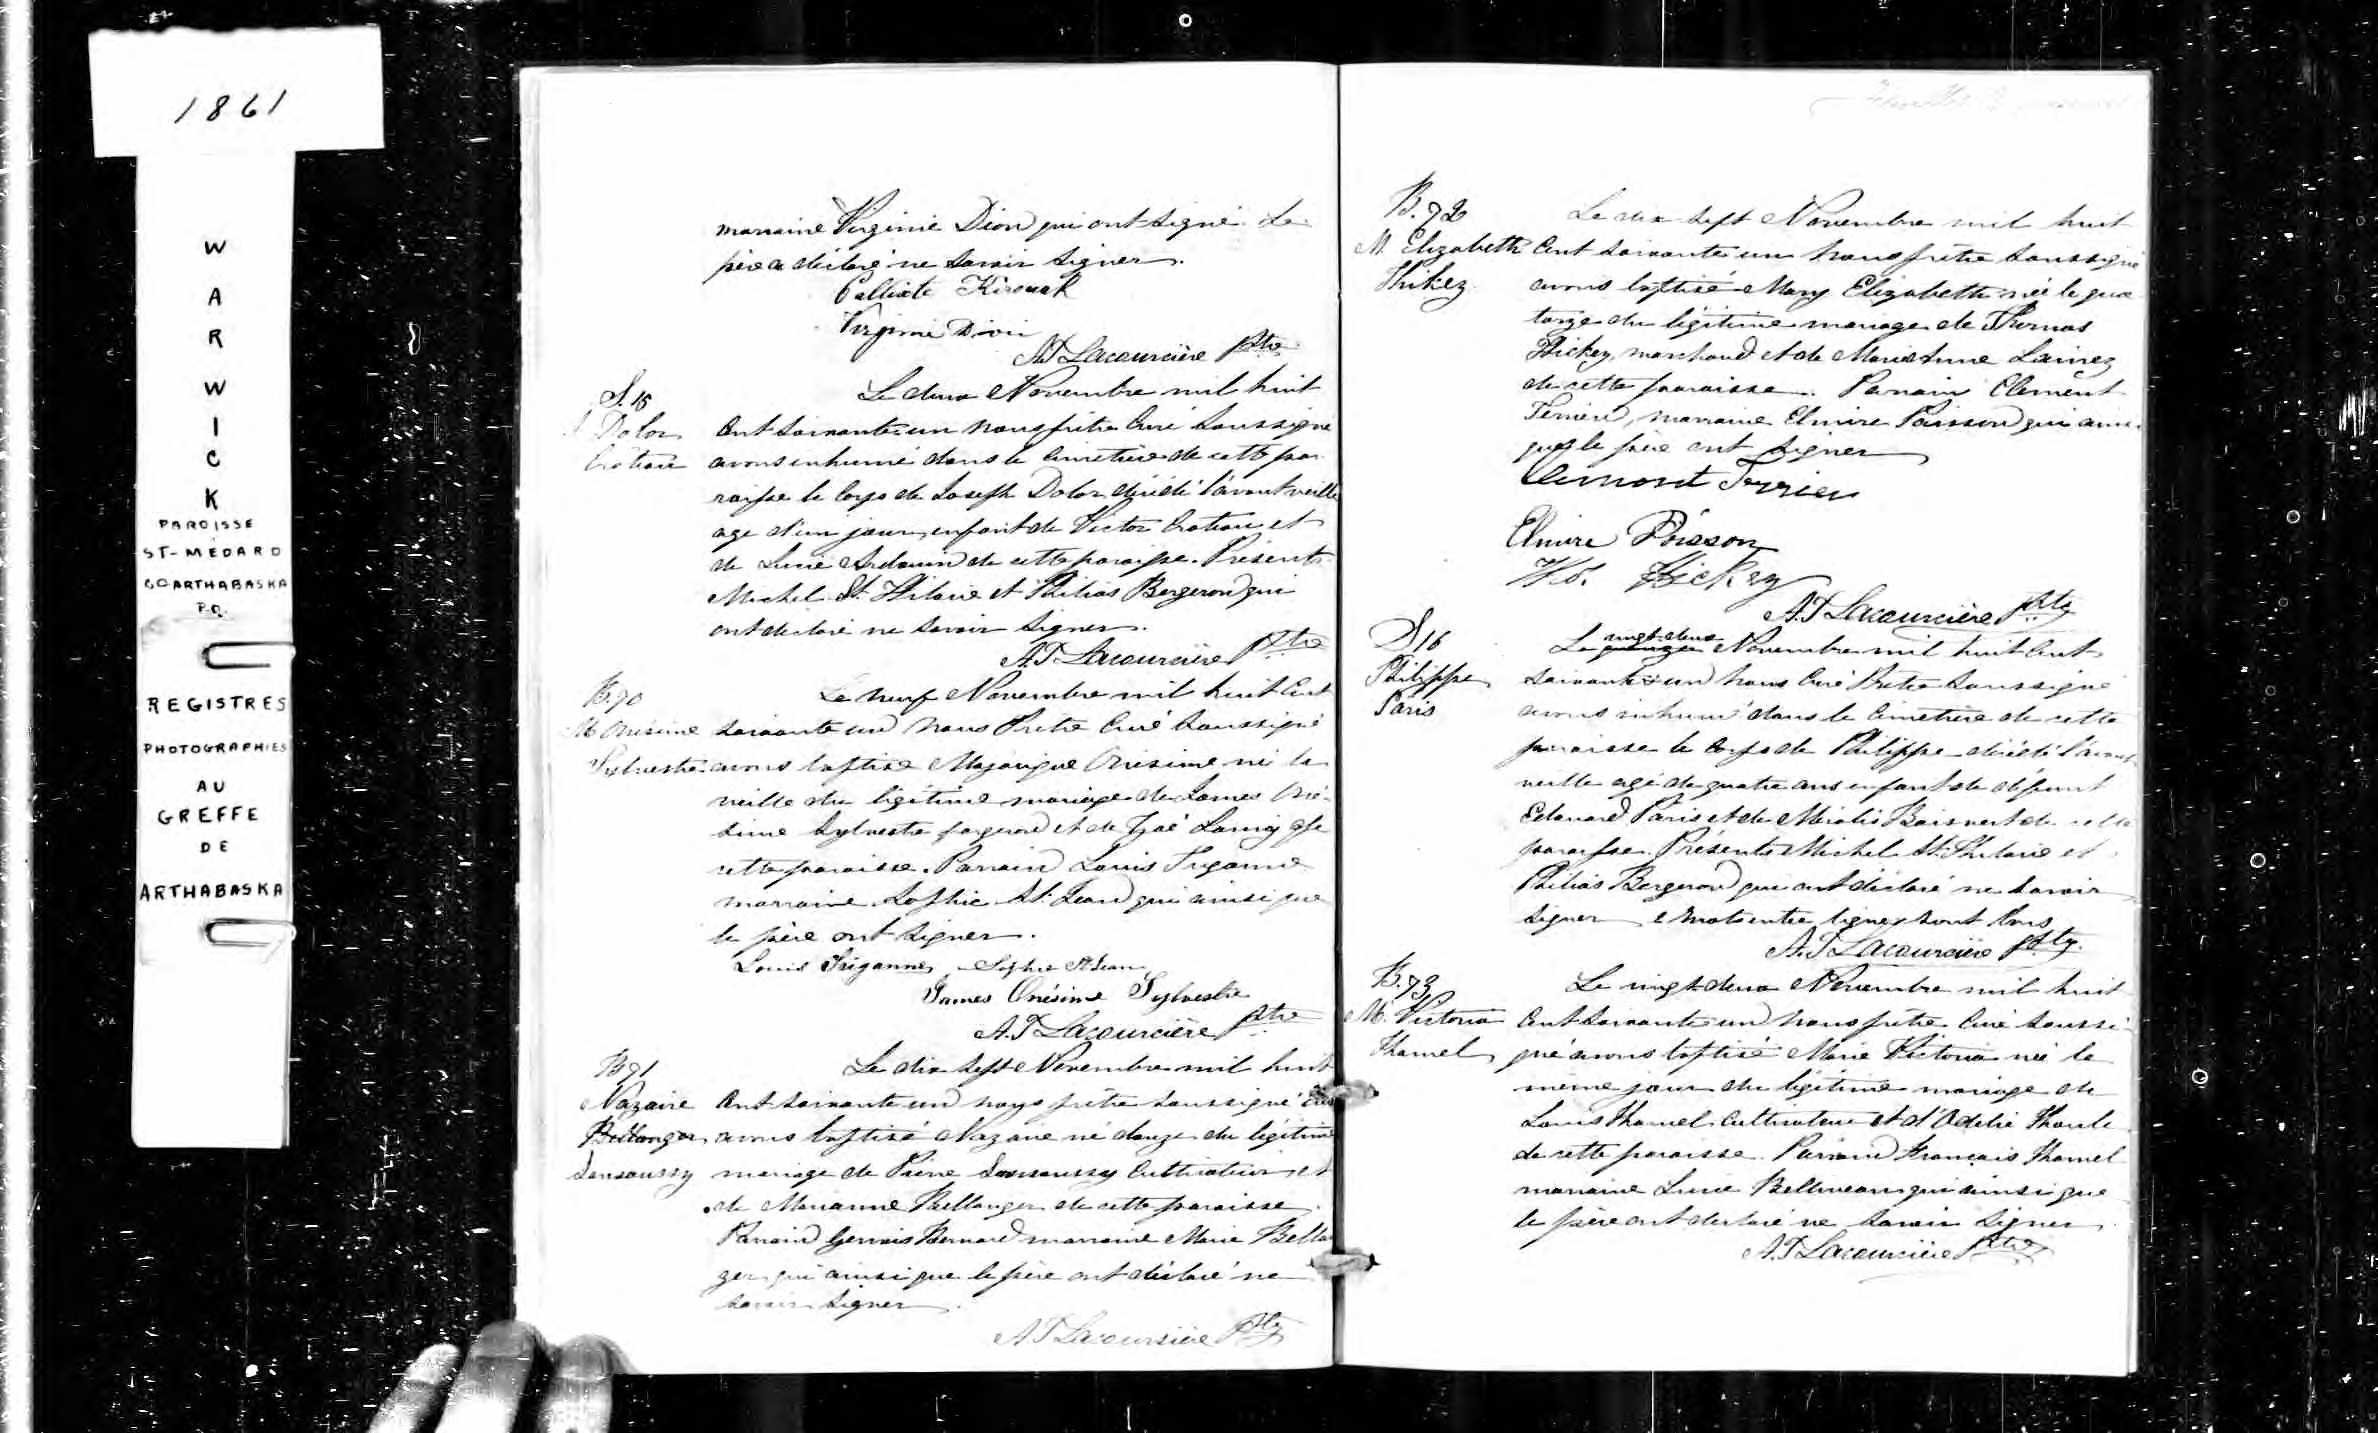 1861
W
A
R
W
I
C
K
PAROISSE
ST-MÉDARD
CO ARTHABASKA
P.Q.
REGISTRES
PHOTOGRAPHIES
AU
GREFFE
DE
ARTHABASKA
marraine Virginie Dion qui ont signé. Le
père a déclaré ne savoir signer.
Callixte Kirouak
Virginie Dion
A.T. Lacourcière Ptre
S. 15
Le deux Novembre mil huit
J. Dolor
cent soixante un nous prêtre Curé soussigné
avons inhumé dans le cimetière de cette pa-
roisse le corps de Joseph Dolor décédé l'avant veille
age d'un jour, enfant de Victor et
de Lucie de cette paroisse. Présents
Michel St. Hilaire et Philias Bergeron qui
ont déclaré ne savoir signer.
A.T. Lacourcière Ptre
B. 70
Le neuf Novembre mil huit Cent
M Onésime
soixante un nous Prêtre Curé soussigné
Sylvestre
avons baptisé Onésime né la
veille du légitime mariage de James Oné-
sime Sylvestre forgeron et de Zoé de
cette paroisse. Parrain Louis Triganne
marraine Sophie St. Jean qui ainsi que
le père ont signer.
Louis Triganne, Sophie St Jean,
James Onésime Sylvestre
A.T. Lacourcière Ptre
B 71
Le dix sept Novembre mil huit
Nazaire
cent soixante un nous prêtre soussigné Curé
Bellanger
avons baptisé Nazaire né douze du légitime
Sansoussy
mariage de Pierre Sansoussy Cultivateur et
de Marianne Bellanger de cette paroisse.
Parrain Gervais Bernard marraine Marie Bellan
ger qui ainsi que le père ont déclaré ne
savoir signer.
A T Lacourcière Ptre
B. 72
Le dix sept Novembre mil huit
M. Elizabeth
Cent soixante un nous prêtre soussigné
Hickey
avons baptisé Mary Elizabeth née le qua
torze du légitime mariage de Thomas
Hickey, marchand et de Marie Anne
de cette paroisse. Parrain Clement
marraine Elmire Poisson qui ainsi
que le père ont signer
Clement Terrien
Elmire Poisson
Hickey
A.T. Lacourcière Ptre
S 16
vingt-deux
Le Novembre mil huit Cent
Philippe
soixante un nous Curé Prêtre soussigné
Paris
avons inhumé dans le cimetière de cette
paroisse le corps de Philippe décédé l'avant
veille agé de quatre ans enfant de défunt
Edouard Paris et de Boisvert de cette
paroisse. Présents Michel St. Hilaire et
Philias Bergeron qui ont déclaré ne savoir
signer 2 mots entre lignes sont bons
A.T. Lacourcière Ptre
B. 73
Le vingt-deux Novembre mil huit
M. Victoria
Cent soixante un nous prêtre Curé soussi-
Hamel
gné avons baptisé Marie Victoria née le
même jour du légitime mariage de
Louis Hamel Cultivateur et d'Odélie Houle
de cette paroisse. Parrain François Hamel
marraine Lucie qui ainsi que
le père ont déclaré ne savoir signer.
A.T. Lacourcière Ptre